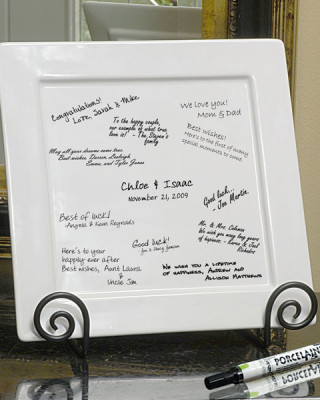 Congratulations!
Love, Sarah & Mike
We love you!
Mom & Dad
To the happy couple,
our example of what true
love is! - The Steven's
family
Best wishes!
Here's to the first of many
special moments to come
May all your dreams come true
Best wishes, Darren,
Emma, and Tyler Jones
Chloe & Isaac
November 21, 2009
Good luck...
- Jon Martin
Best of luck!
- Angela & Kevin Reynolds
Mr. & Mrs. Coleman
We wish you many long years
of happiness - Karen & Paul
Good luck!
Jim & Johnson
Here's to your
happily ever after
Best wishes, Aunt Laura
&
Uncle Jim
We wish you a lifetime
of happiness, Andrew and
Allison Matthews
PORCELAIN
PORCELAIN